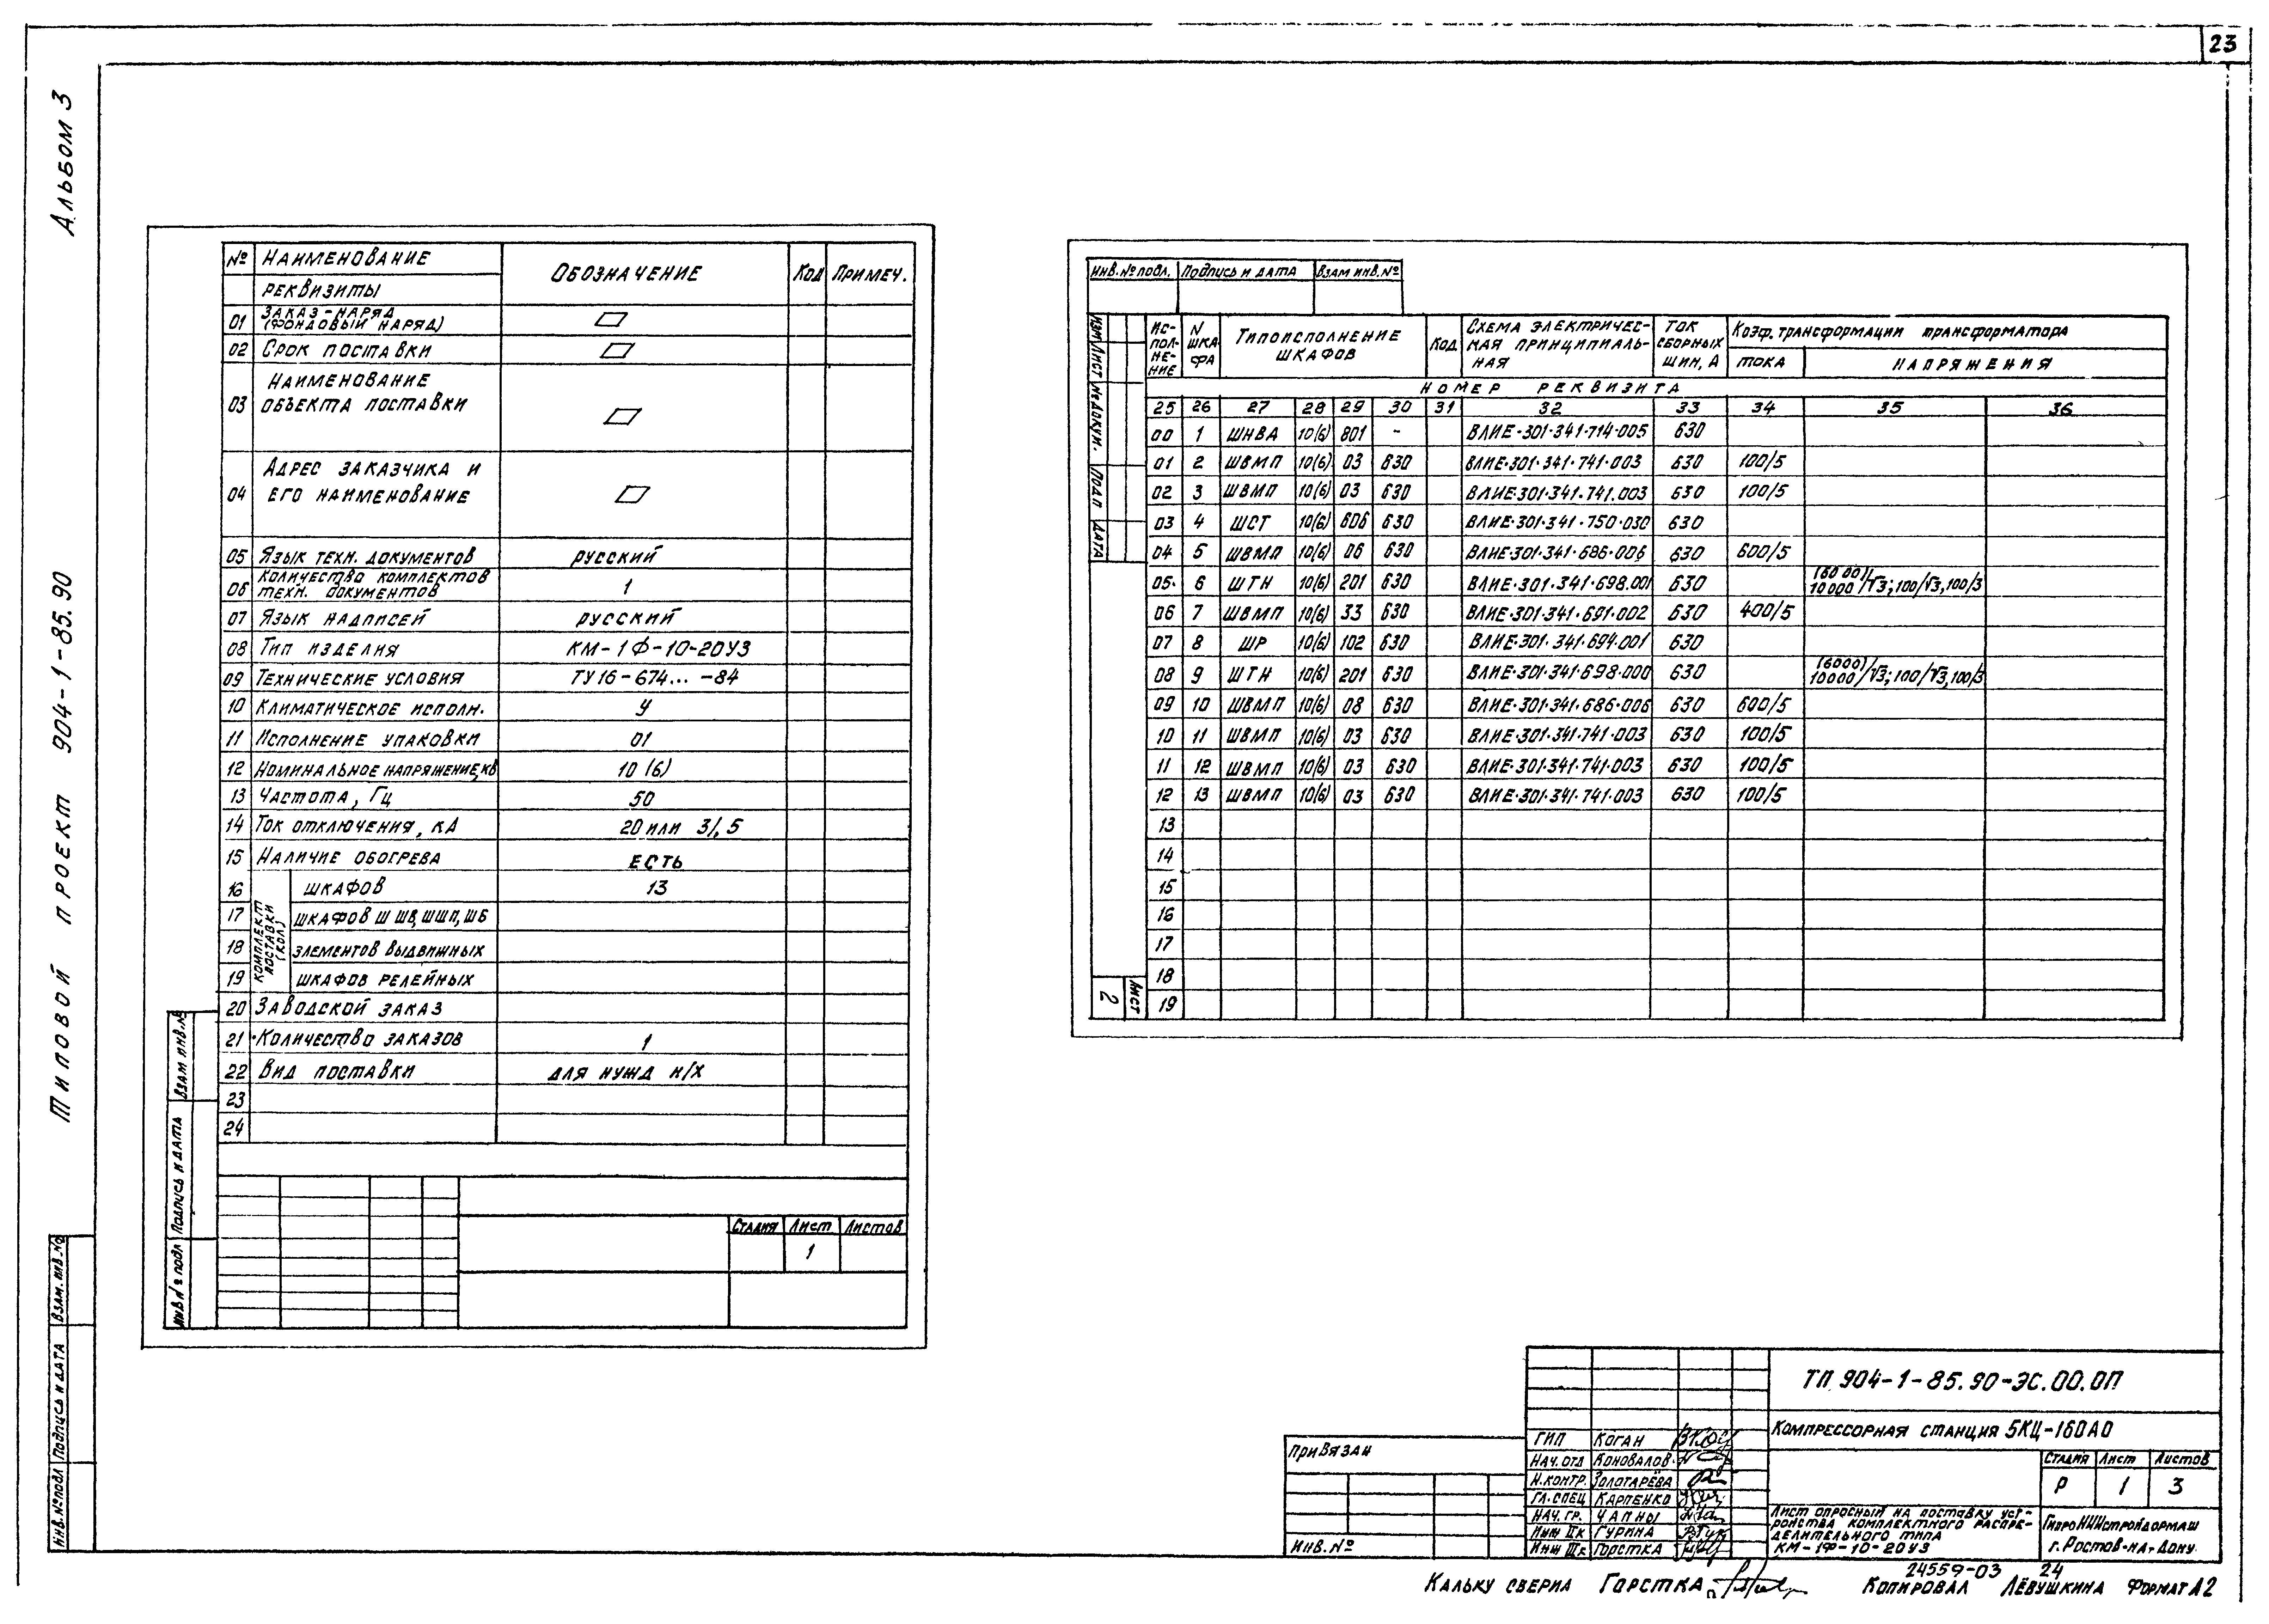 23
Альбом 3
Типовой проект 904-1-85.90
№ Наименование Обозначение Код Примеч.
реквизиты
01 Заказ-наряд (фондовый наряд)
02 Срок поставки
03 Наименование объекта поставки
04 Адрес заказчика и его наименование
05 Язык техн. документов русский
06 Количество комплектов техн. документов 1
07 Язык надписей русский
08 Тип изделия КМ-1Ф-10-20У3
09 Технические условия ТУ16-674... -84
10 Климатическое исполн. У
11 Исполнение упаковки 01
12 Номинальное напряжение, кВ 10 (6)
13 Частота, Гц 50
14 Ток отключения, кА 20 или 31,5
15 Наличие обогрева есть
Комплект поставки (кол)
16 шкафов 13
17 шкафов Ш ШВ, ШШП, ШБ
18 элементов выдвижных
19 шкафов релейных
20 Заводской заказ
21 Количество заказов 1
22 Вид поставки для нужд н/х
23
24
Стадия Лист Листов
1
Взам инв.№
Подпись и дата
Инв № подл
Инв.№ подл. Подпись и дата Взам инв.№
Изм Лист № докум. Подп Дата
Ис-пол-не-ние N шка фа Типоисполнение шкафов Код Схема электричес-мая принципиаль-ная Ток сборных шин, А Коэф. трансформации трансформатора
тока напряжения
Номер реквизита
25 26 27 28 29 30 31 32 33 34 35 36
00 1 ШНВА 10(6) 801 - ВЛИЕ·301·341·714·005 630
01 2 ШВМП 10(6) 03 630 ВЛИЕ·301·341·741·003 630 100/5
02 3 ШВМП 10(6) 03 630 ВЛИЕ·301·341·741.003 630 100/5
03 4 ШСТ 10(6) 606 630 ВЛИЕ·301·341·750·030 630
04 5 ШВМП 10(6) 06 630 ВЛИЕ·301·341·686·006 630 600/5
05 6 ШТН 10(6) 201 630 ВЛИЕ·301·341·698.001 630 (6000) 10000/√3; 100/√3, 100/3
06 7 ШВМП 10(6) 33 630 ВЛИЕ·301·341·691·002 630 400/5
07 8 ШР 10(6) 102 630 ВЛИЕ·301·341·694·001 630
08 9 ШТН 10(6) 201 630 ВЛИЕ·301·341·698·000 630 (6000) 10000/√3; 100/√3, 100/3
09 10 ШВМП 10(6) 08 630 ВЛИЕ·301·341·686·006 630 600/5
10 11 ШВМП 10(6) 03 630 ВЛИЕ·301·341·741·003 630 100/5
11 12 ШВМП 10(6) 03 630 ВЛИЕ·301·341·741·003 630 100/5
12 13 ШВМП 10(6) 03 630 ВЛИЕ·301·341·741·003 630 100/5
13
14
15
16
17
18
19
2 Лист
Взам. инв.№
Подпись и дата
Инв.№ подл
Привязан
Инв.№
ТП 904-1-85.90-ЭС.00.ОП
Компрессорная станция 5КЦ-160АО
ГИП Коган
Нач. отд Коновалов
Н.контр. Золотарёва
Гл. спец Карпенко
Нач. гр. Чапны
Инж IIк Гурина
Инж IIIк Горстка
Стадия Лист Листов
Р 1 3
Лист опросный на поставку уст-
ройства комплектного распре-
делительного типа
КМ-1Ф-10-20У3
ГипроНИИстройдормаш
г. Ростов-на-Дону
24559-03 24
Кальку сверила Горстка
Копировал Лёвушкина Формат А2